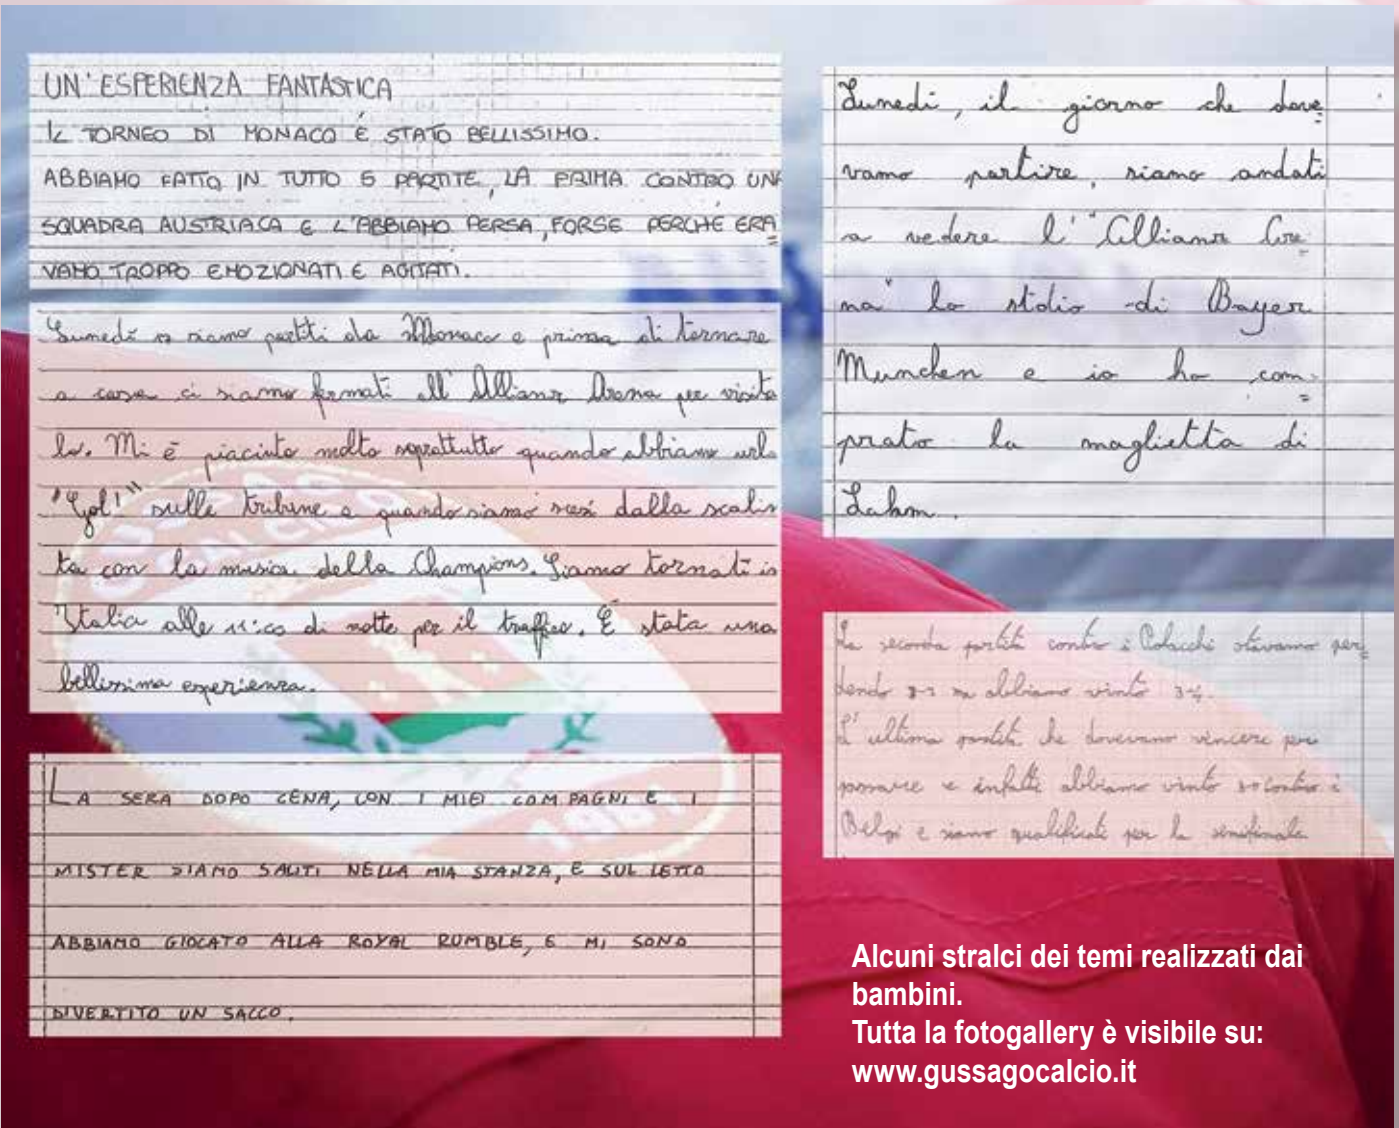 UN'ESPERIENZA FANTASTICA
IL TORNEO DI MONACO È STATO BELLISSIMO.
ABBIAMO FATTO IN TUTTO 5 PARTITE, LA PRIMA CONTRO UNA
SQUADRA AUSTRIACA E L'ABBIAMO PERSA, FORSE PERCHÉ ERA
VAMO TROPPO EMOZIONATI E AGITATI.
Lunedì siamo partiti da Monaco e prima di tornare
a casa ci siamo fermati all'Allianz Arena per visita
la. Mi è piaciuto molto soprattutto quando abbiamo url
"Gol!" sulle tribune e quando siamo scesi dalla scalin
ta con la musica della Champions. Siamo tornati in
Italia alle di notte per il traffico. È stata una
bellissima esperienza.
LA SERA DOPO CENA, CON I MIEI COMPAGNI E I
MISTER SIAMO SALITI NELLA MIA STANZA, E SUL LETTO
ABBIAMO GIOCATO ALLA ROYAL RUMBLE, E MI SONO
DIVERTITO UN SACCO.
Lunedì, il giorno che dove=
vamo partire, siamo andati
a vedere l'"Allianz Are=
na" lo stadio di Bayer
Munchen e io ho com=
prato la maglietta di
Lahm.
La seconda partita contro i Polacchi stavamo per=
dendo ma abbiamo vinto 3-4.
L'ultima partita che dovevamo vincere per
passare e infatti abbiamo vinto contro i
Belgi e siamo qualificati per la semifinale
GUSSAGO CALCIO
1981
Alcuni stralci dei temi realizzati dai
bambini.
Tutta la fotogallery è visibile su:
www.gussagocalcio.it